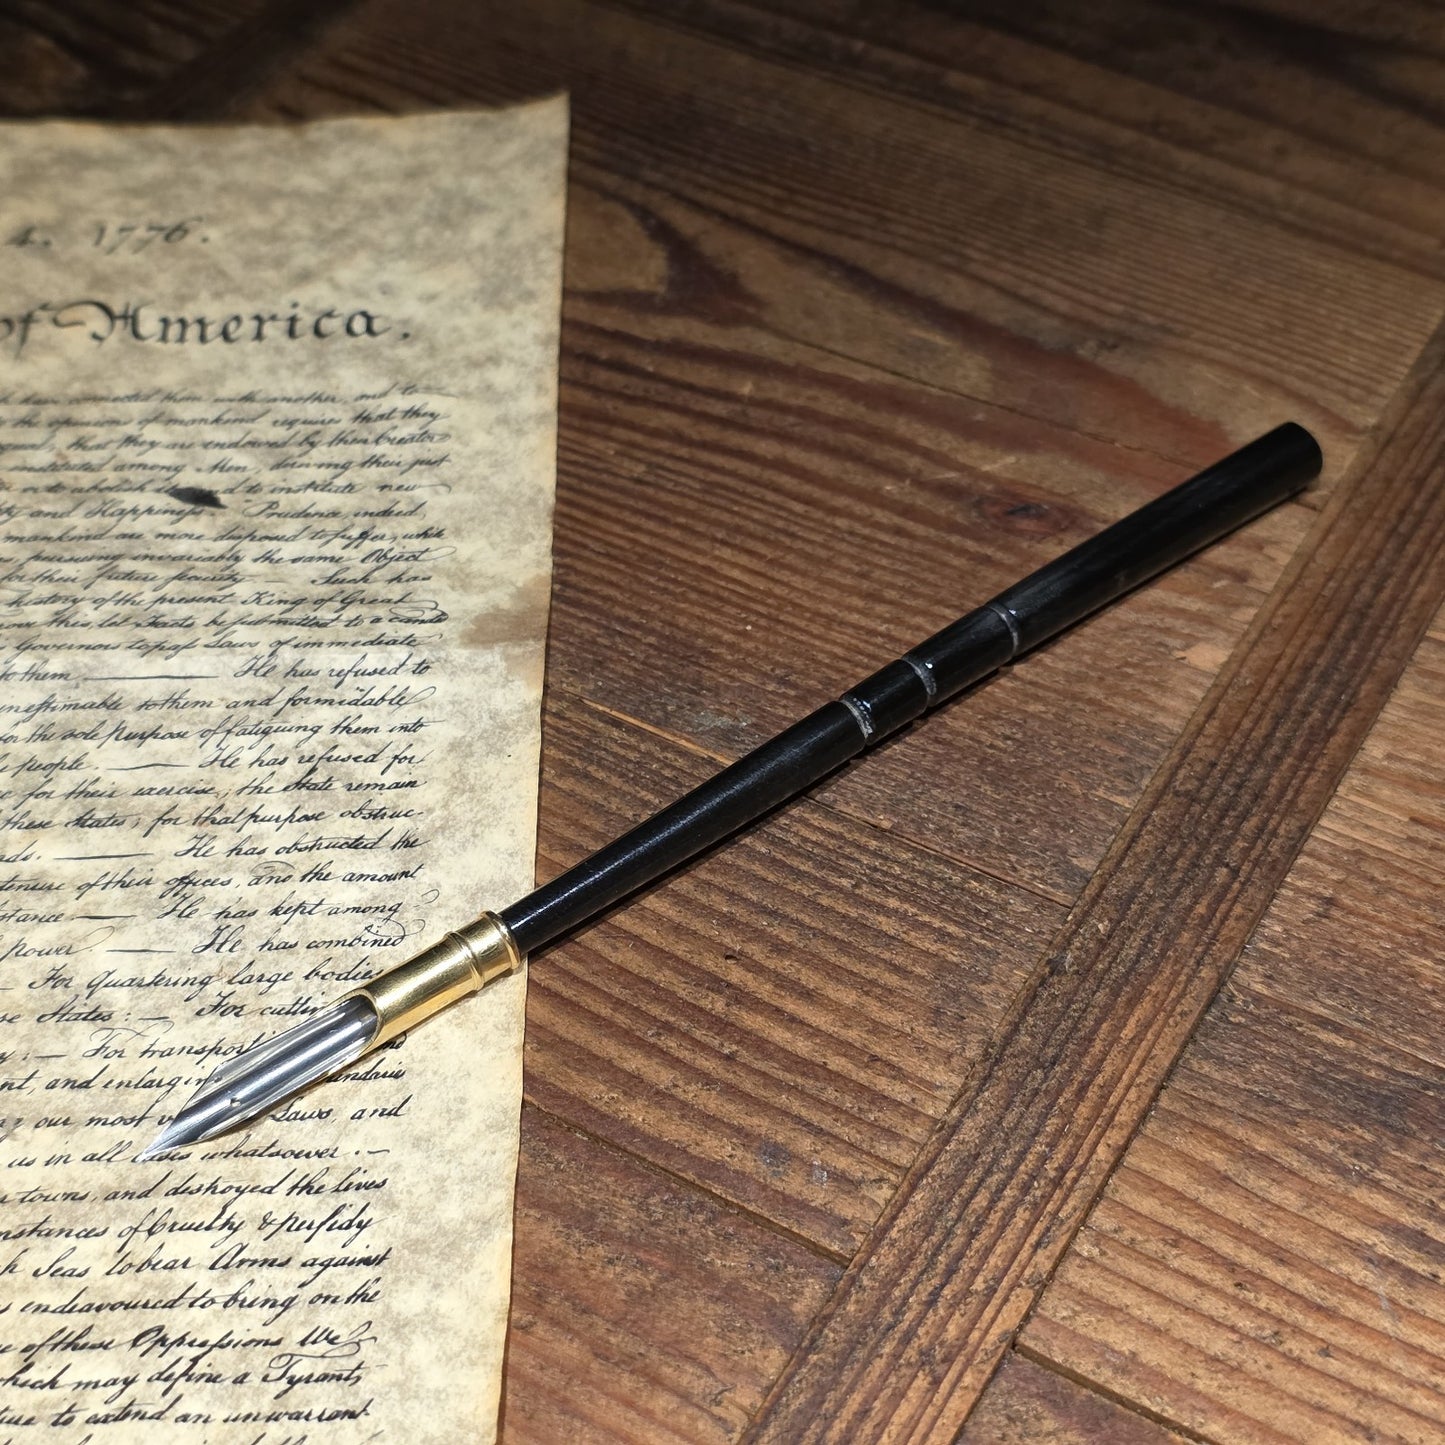 4. 1776.
of America.
have connected them with another, and to
the opinions of mankind requires that they
equal, that they are endowed by their Creator
instituted among Men, deriving their just
or to abolish it, and to institute new
and Happiness. Prudence, indeed,
mankind are more disposed to suffer, while
pursuing invariably the same Object
for their future security. — Such has
history of the present King of Great
prove this, let Facts be submitted to a candid
Governors to pass Laws of immediate
to them. He has refused to
inestimable to them and formidable
for the sole purpose of fatiguing them into
people. — He has refused for
for their exercise; the State remain
these States; for that purpose obstruc-
He has obstructed the
tenure of their offices, and the amount
He has kept among
power. — He has combined
— For Quartering large bodies
States: — For cutting
: — For transport
and enlarging
our most Laws, and
us in all cases whatsoever. —
towns, and destroyed the lives
of Cruelty & perfidy
Seas to bear Arms against
endeavoured to bring on the
of these Oppressions We
which may define a Tyrant,
to extend an unwarrant-